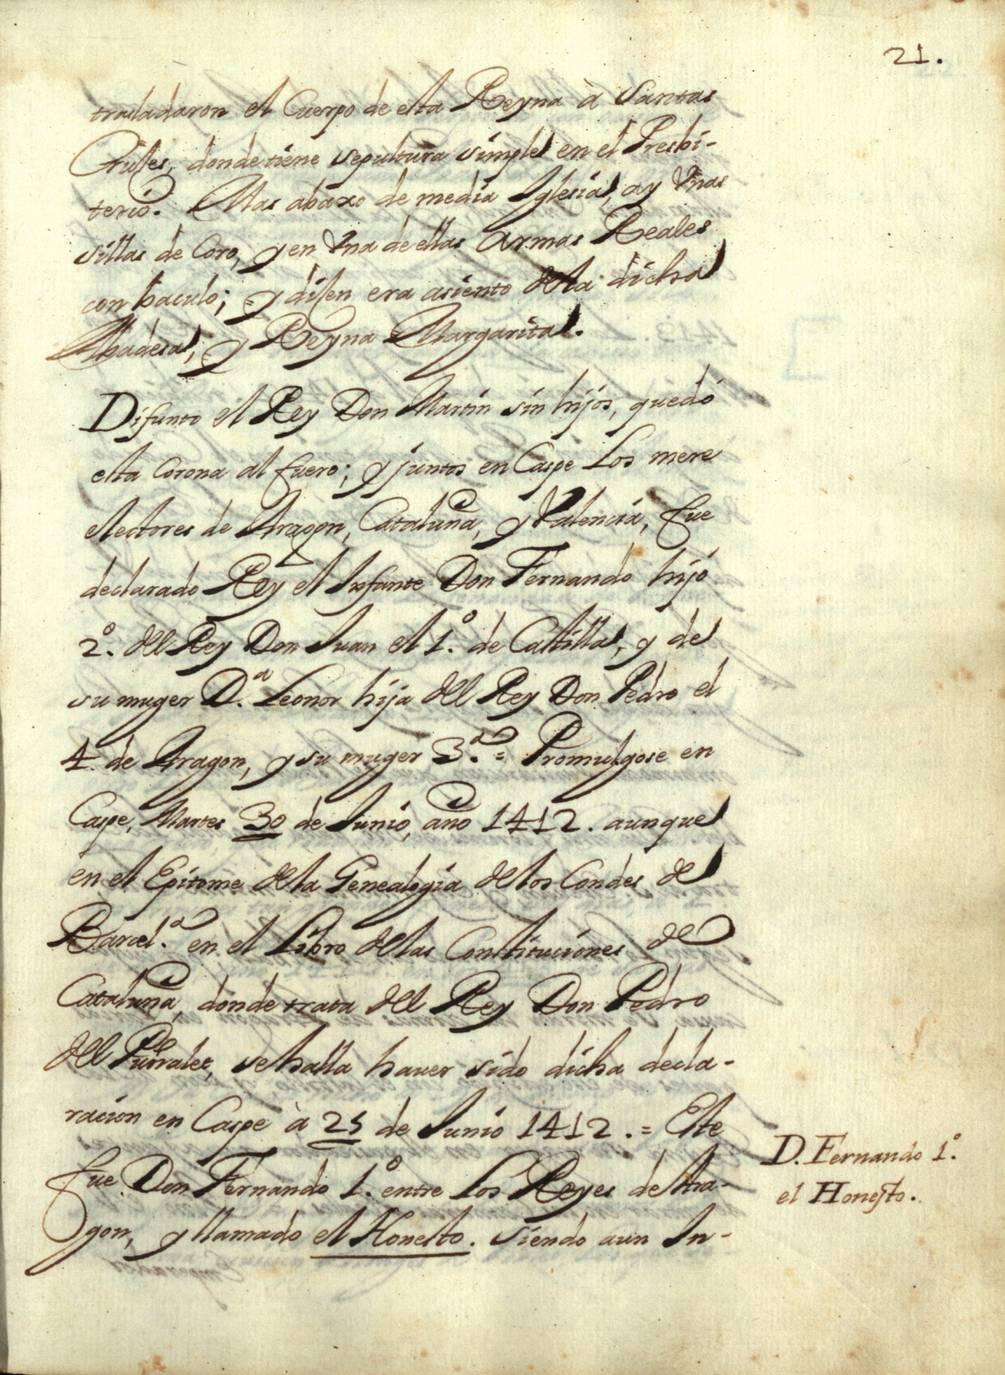 21.
trasladaron el Cuerpo de esta Reyna à Santas
Cruses, donde tiene sepultura simple en el Presbi-
terio. Mas abaxo de media Iglesia, ay Vnas
sillas de Coro, y en Vna de ellas Armas Reales
con baculo; y disen era asiento de la dicha
Abadesa, y Reyna Margarita.
Difunto el Rey Don Martin sin hijos, quedó
esta Corona al fuero; y juntos en Caspe Los
electores de Aragon, Cataluña, y Valencia, fue
declarado Rey el Infante Don Fernando hijo
2º. del Rey Don Juan el 1º. de Castilla, y de
su muger D.ª Leonor hija del Rey Don Pedro el
4. de Aragon, y su muger 3.ª = Promulgose en
Caspe, Martes 30 de Junio, año 1412. aunque
en el Epitome de la Genealogia de los Condes de
Barcel.ª en el Libro de las Constituciones de
Cataluña, donde trata del Rey Don Pedro
del Puñalet, se halla haver sido dicha decla-
racion en Caspe à 25 de Junio 1412. = Este
fue Don Fernando 1º. entre Los Reyes de Ara-
gon, y llamado el Honesto. Siendo aun In-
D. Fernando 1º.
el Honesto.